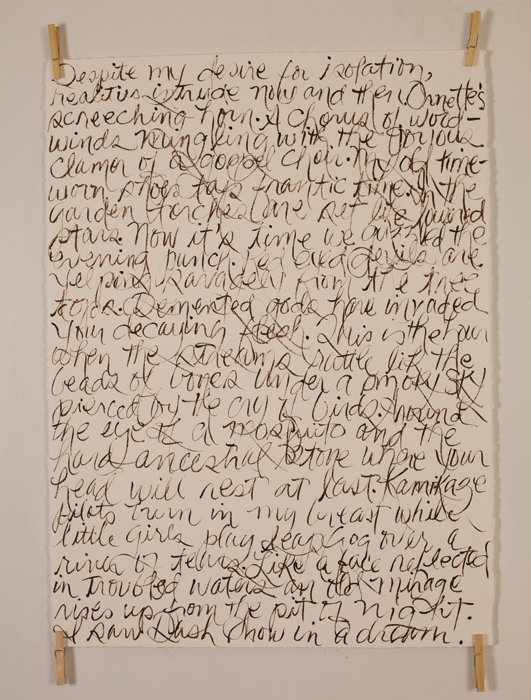 Despite my desire for isolation,
realities intrude now and then. Ornette's
screeching horn. A chorus of wood-
winds mingling with the furious
clamor of a gospel choir. My old time-
worn shoes tap frantic time. In the
garden torches are set like
stars. Now it's time we the
evening punch. Red eyed devils are
yelping from the tree
tops. Demented gods have invaded
your decaying flesh. This is the hour
when the streams rattle like the
beads of bones under a smoky sky
pierced by the cry of birds.
the eye of a mosquito and the
hard ancestral stone where your
head will rest at last. Kamikaze
pilots burn in my breast while
little girls play leap frog over a
river of tears. Like a face reflected
in troubled waters an old mirage
rises up from the pit of night.
I saw Show in a dream.